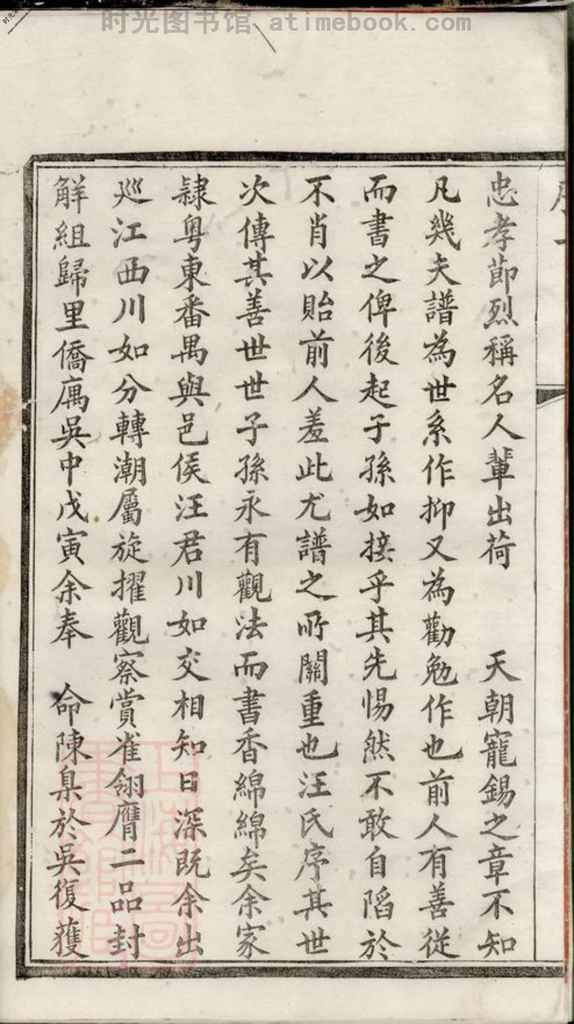 时光图书馆 atimebook.com
忠孝節烈稱名人輩出荷 天朝寵錫之章不知
凡幾夫譜為世系作抑又為勸勉作也前人有善從
而書之俾後起子孫如接乎其先惕然不敢自陷於
不肖以貽前人羞此尤譜之所關重也汪氏序其世
次傳其善世世子孫永有觀法而書香綿綿矣余家
隸粤東番禺與邑侯汪君川如交相知日深既余出
廵江西川如分轉潮屬旋擢觀察賞雀翎膺二品封
觧組歸里僑寓吳中戊寅余奉 命陳臬於吳復獲